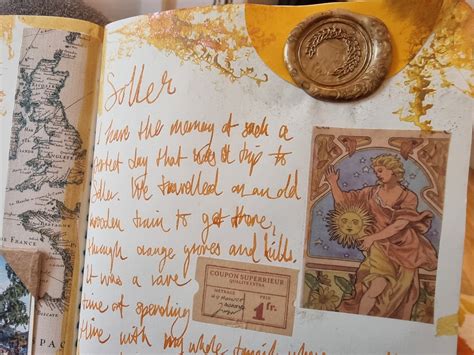 Soller
I have the memory of such a
perfect day that was a trip to
Soller. We travelled on an old
wooden train to get there,
through orange groves and hills.
It was a rare
time of spending
time with my whole
COUPON SUPERRIEUR
QUALITE EXTRA
METRAGE
PRIX
1 fr.